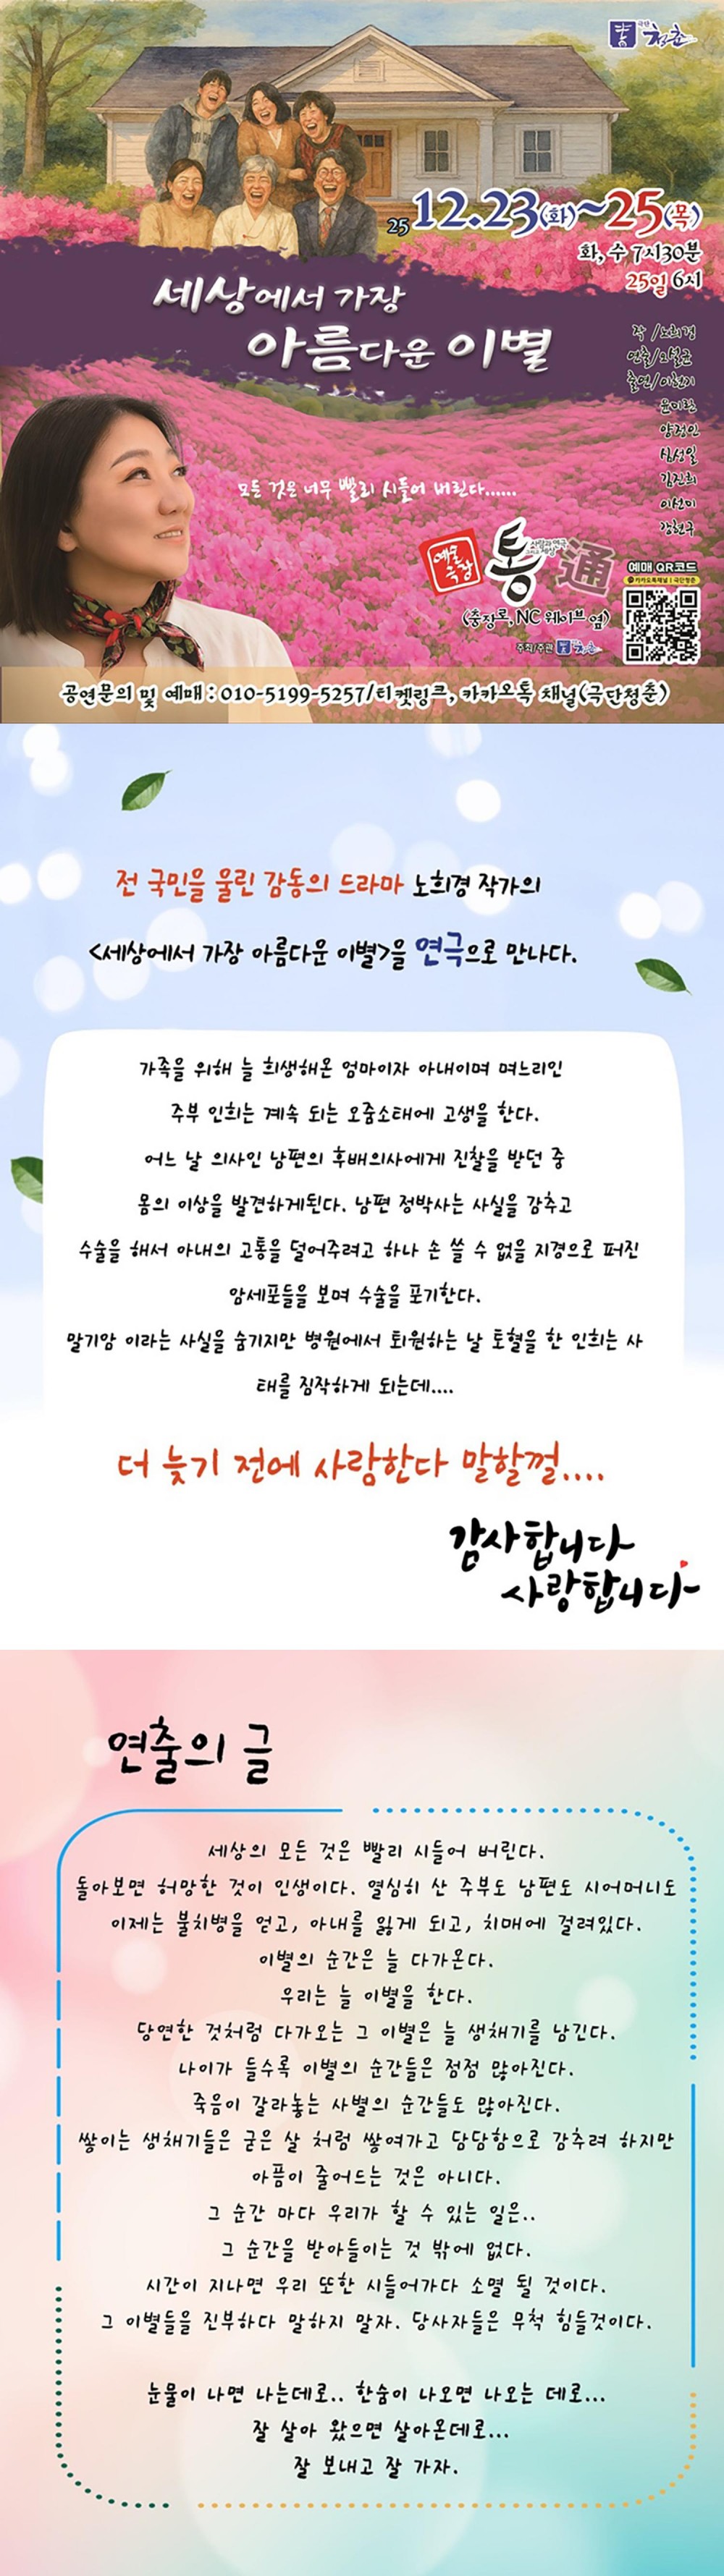 극단 청춘
25 12.23(화)~25(목)
화, 수 7시30분
25일 6시
세상에서 가장
아름다운 이별
작 /노희경
연출/오설균
출연/이현기
윤미란
양정인
심성일
김진희
이선미
강현구
모든 것은 너무 빨리 시들어 버린다......
예술극장
통 通
사람과 연극 그리고 세상
(충장로, NC 웨이브 옆)
주최/주관 청춘
예매 QR코드
카카오톡채널 | 극단청춘
공연문의 및 예매 : 010-5199-5257/티켓링크, 카카오톡 채널(극단청춘)
전 국민을 울린 감동의 드라마 노희경 작가의
<세상에서 가장 아름다운 이별>을 연극으로 만나다.
가족을 위해 늘 희생해온 엄마이자 아내이며 며느리인
주부 인희는 계속 되는 오줌소태에 고생을 한다.
어느 날 의사인 남편의 후배의사에게 진찰을 받던 중
몸의 이상을 발견하게된다. 남편 정박사는 사실을 감추고
수술을 해서 아내의 고통을 덜어주려고 하나 손 쓸 수 없을 지경으로 퍼진
암세포들을 보며 수술을 포기한다.
말기암 이라는 사실을 숨기지만 병원에서 퇴원하는 날 토혈을 한 인희는 사
태를 짐작하게 되는데....
더 늦기 전에 사랑한다 말할껄....
감사합니다
사랑합니다
연출의 글
세상의 모든 것은 빨리 시들어 버린다.
돌아보면 허망한 것이 인생이다. 열심히 산 주부도 남편도 시어머니도
이제는 불치병을 얻고, 아내를 잃게 되고, 치매에 걸려있다.
이별의 순간은 늘 다가온다.
우리는 늘 이별을 한다.
당연한 것처럼 다가오는 그 이별은 늘 생채기를 남긴다.
나이가 들수록 이별의 순간들은 점점 많아진다.
죽음이 갈라놓는 사별의 순간들도 많아진다.
쌓이는 생채기들은 굳은 살 처럼 쌓여가고 담담함으로 감추려 하지만
아픔이 줄어드는 것은 아니다.
그 순간 마다 우리가 할 수 있는 일은..
그 순간을 받아들이는 것 밖에 없다.
시간이 지나면 우리 또한 시들어가다 소멸 될 것이다.
그 이별들을 진부하다 말하지 말자. 당사자들은 무척 힘들것이다.
눈물이 나면 나는데로.. 한숨이 나오면 나오는 데로...
잘 살아 왔으면 살아온데로...
잘 보내고 잘 가자.